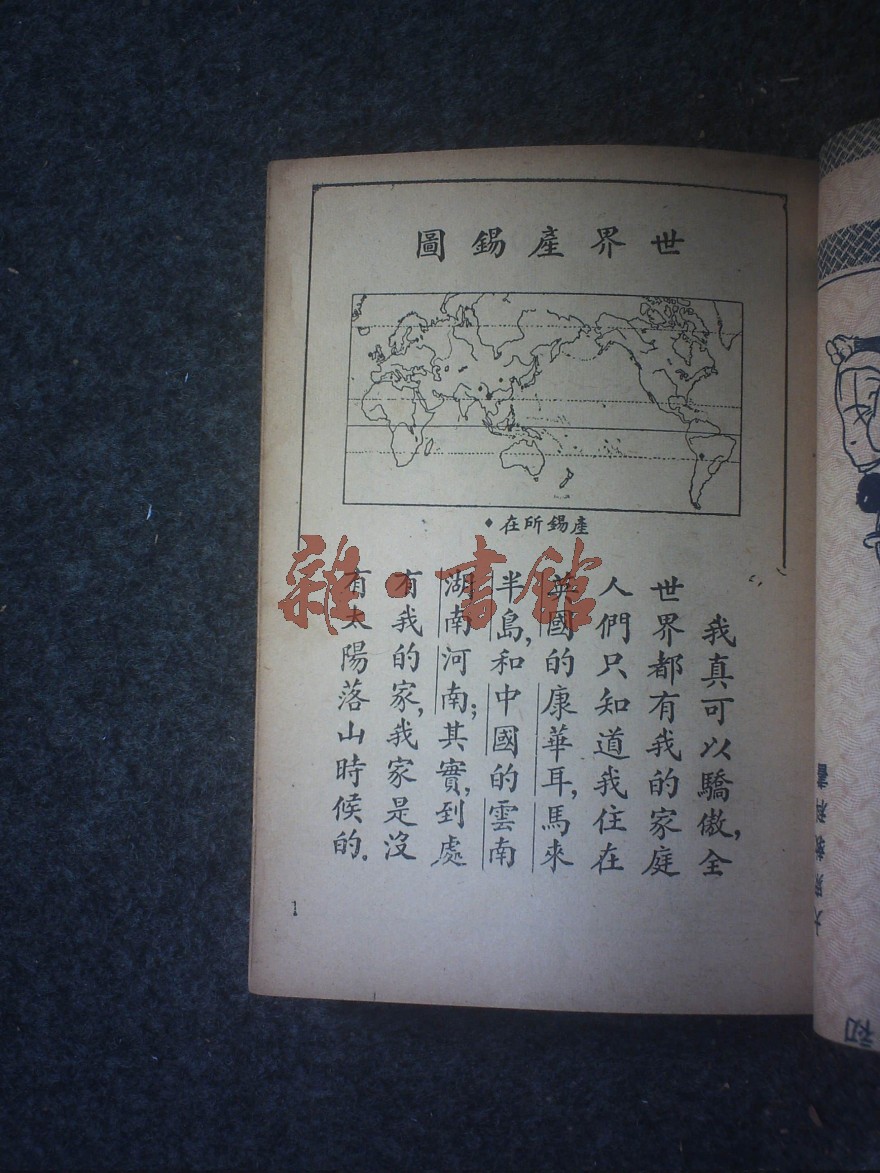 世界產錫圖
產錫所在◆
我真可以驕傲，全
世界都有我的家庭
人們只知道我住在
英國的康華耳，馬來
半島，和中國的雲南
湖南河南；其實，到處
有我的家，我家是沒
有太陽落山時候的．
1
雜·書館
初